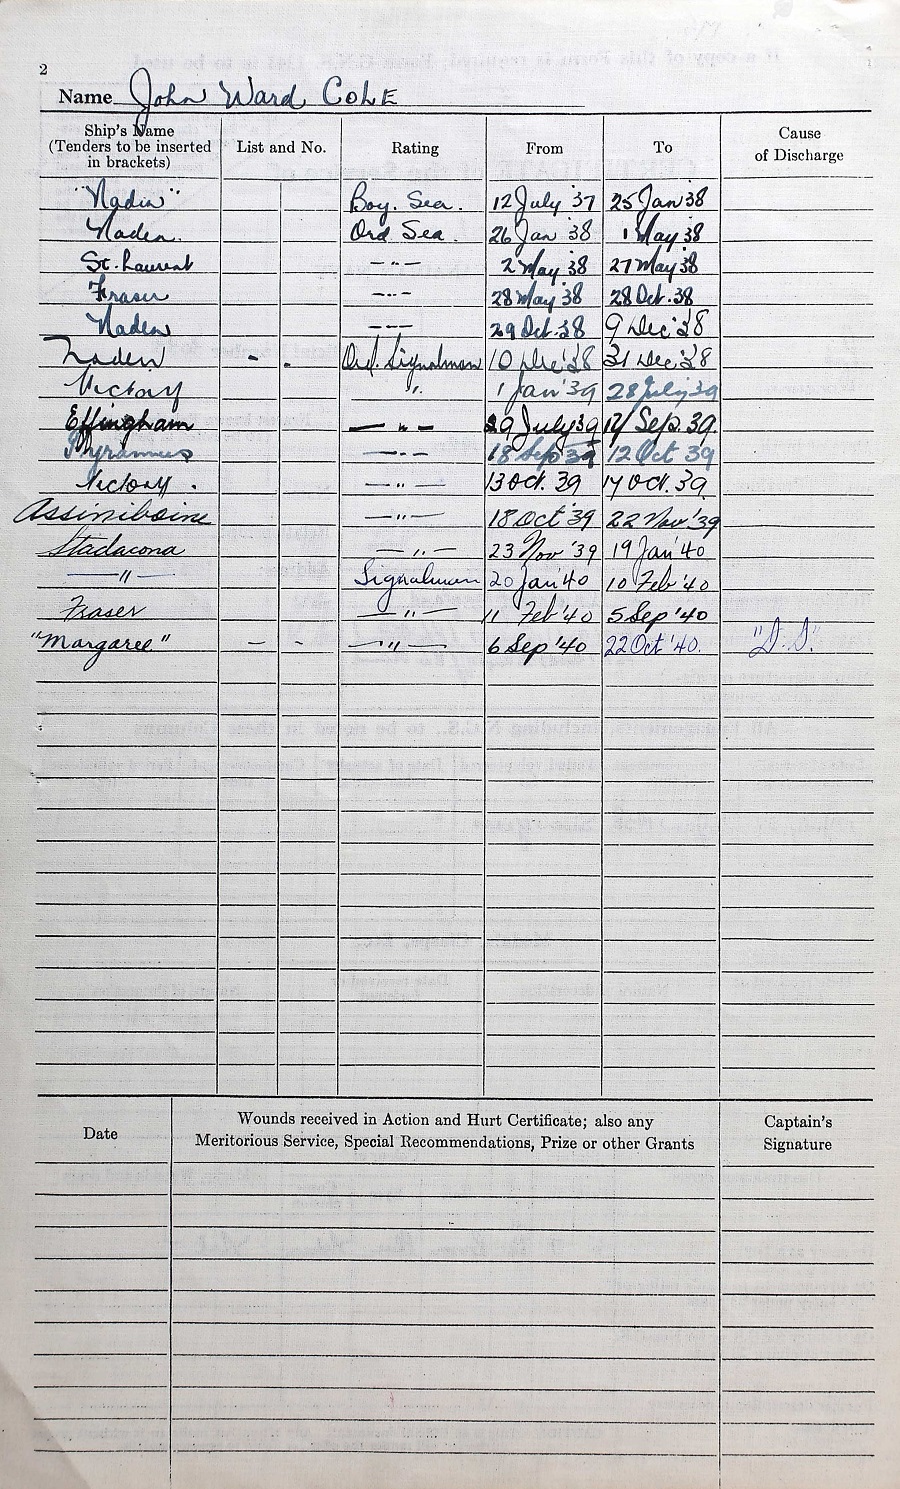 2
Name John Ward COLE
Ship's Name (Tenders to be inserted in brackets) List and No. Rating From To Cause of Discharge
"Naden" Boy. Sea. 12 July '37 25 Jan 38
Naden. Ord Sea. 26 Jan '38 1 May 38
St. Laurent — " — 2 May '38 27 May '38
Fraser — " — 28 May '38 28 Oct. 38
Naden — — — 29 Oct. 38 9 Dec '38
Naden - - Ord. Signalman 10 Dec '38 31 Dec '38
Victory ". 1 Jan '39 28 July '39
Effingham — " — 29 July 39 17 Sep. 39.
— " — 18 Sep 39 12 Oct 39
Victory. — " — 13 Oct. 39 17 Oct. 39.
Assiniboine — " — 18 Oct '39 22 Nov '39
Stadacona — " — 23 Nov '39 19 Jan '40
— " — Signalman 20 Jan '40 10 Feb '40
Fraser — " — 11 Feb '40 5 Sep '40
"Margaree" — - — " — 6 Sep '40 22 Oct '40. "D.D."
Date Wounds received in Action and Hurt Certificate; also any Meritorious Service, Special Recommendations, Prize or other Grants Captain's Signature